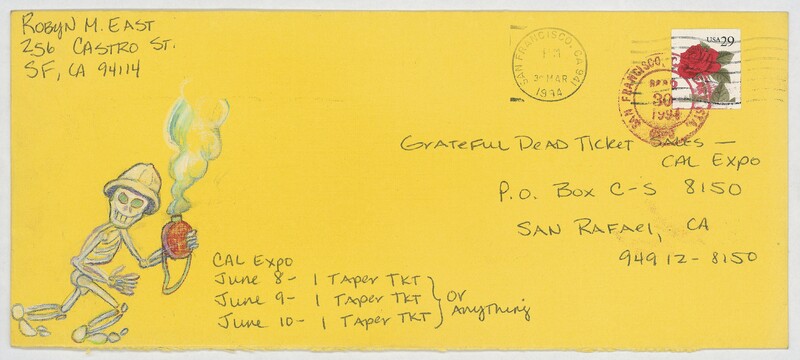 Robyn M. East
256 Castro St.
SF, CA 94114
SAN FRANCISCO, CA 941
PM
30 MAR
1994
USA 29
SAN FRANCISCO, C
30
1994
Grateful Dead Ticket Sales —
Cal Expo
P.O. Box C-S 8150
San Rafael, CA
94912-8150
Cal Expo
June 8- 1 Taper Tkt
June 9- 1 Taper Tkt
June 10- 1 Taper Tkt
or
Anything